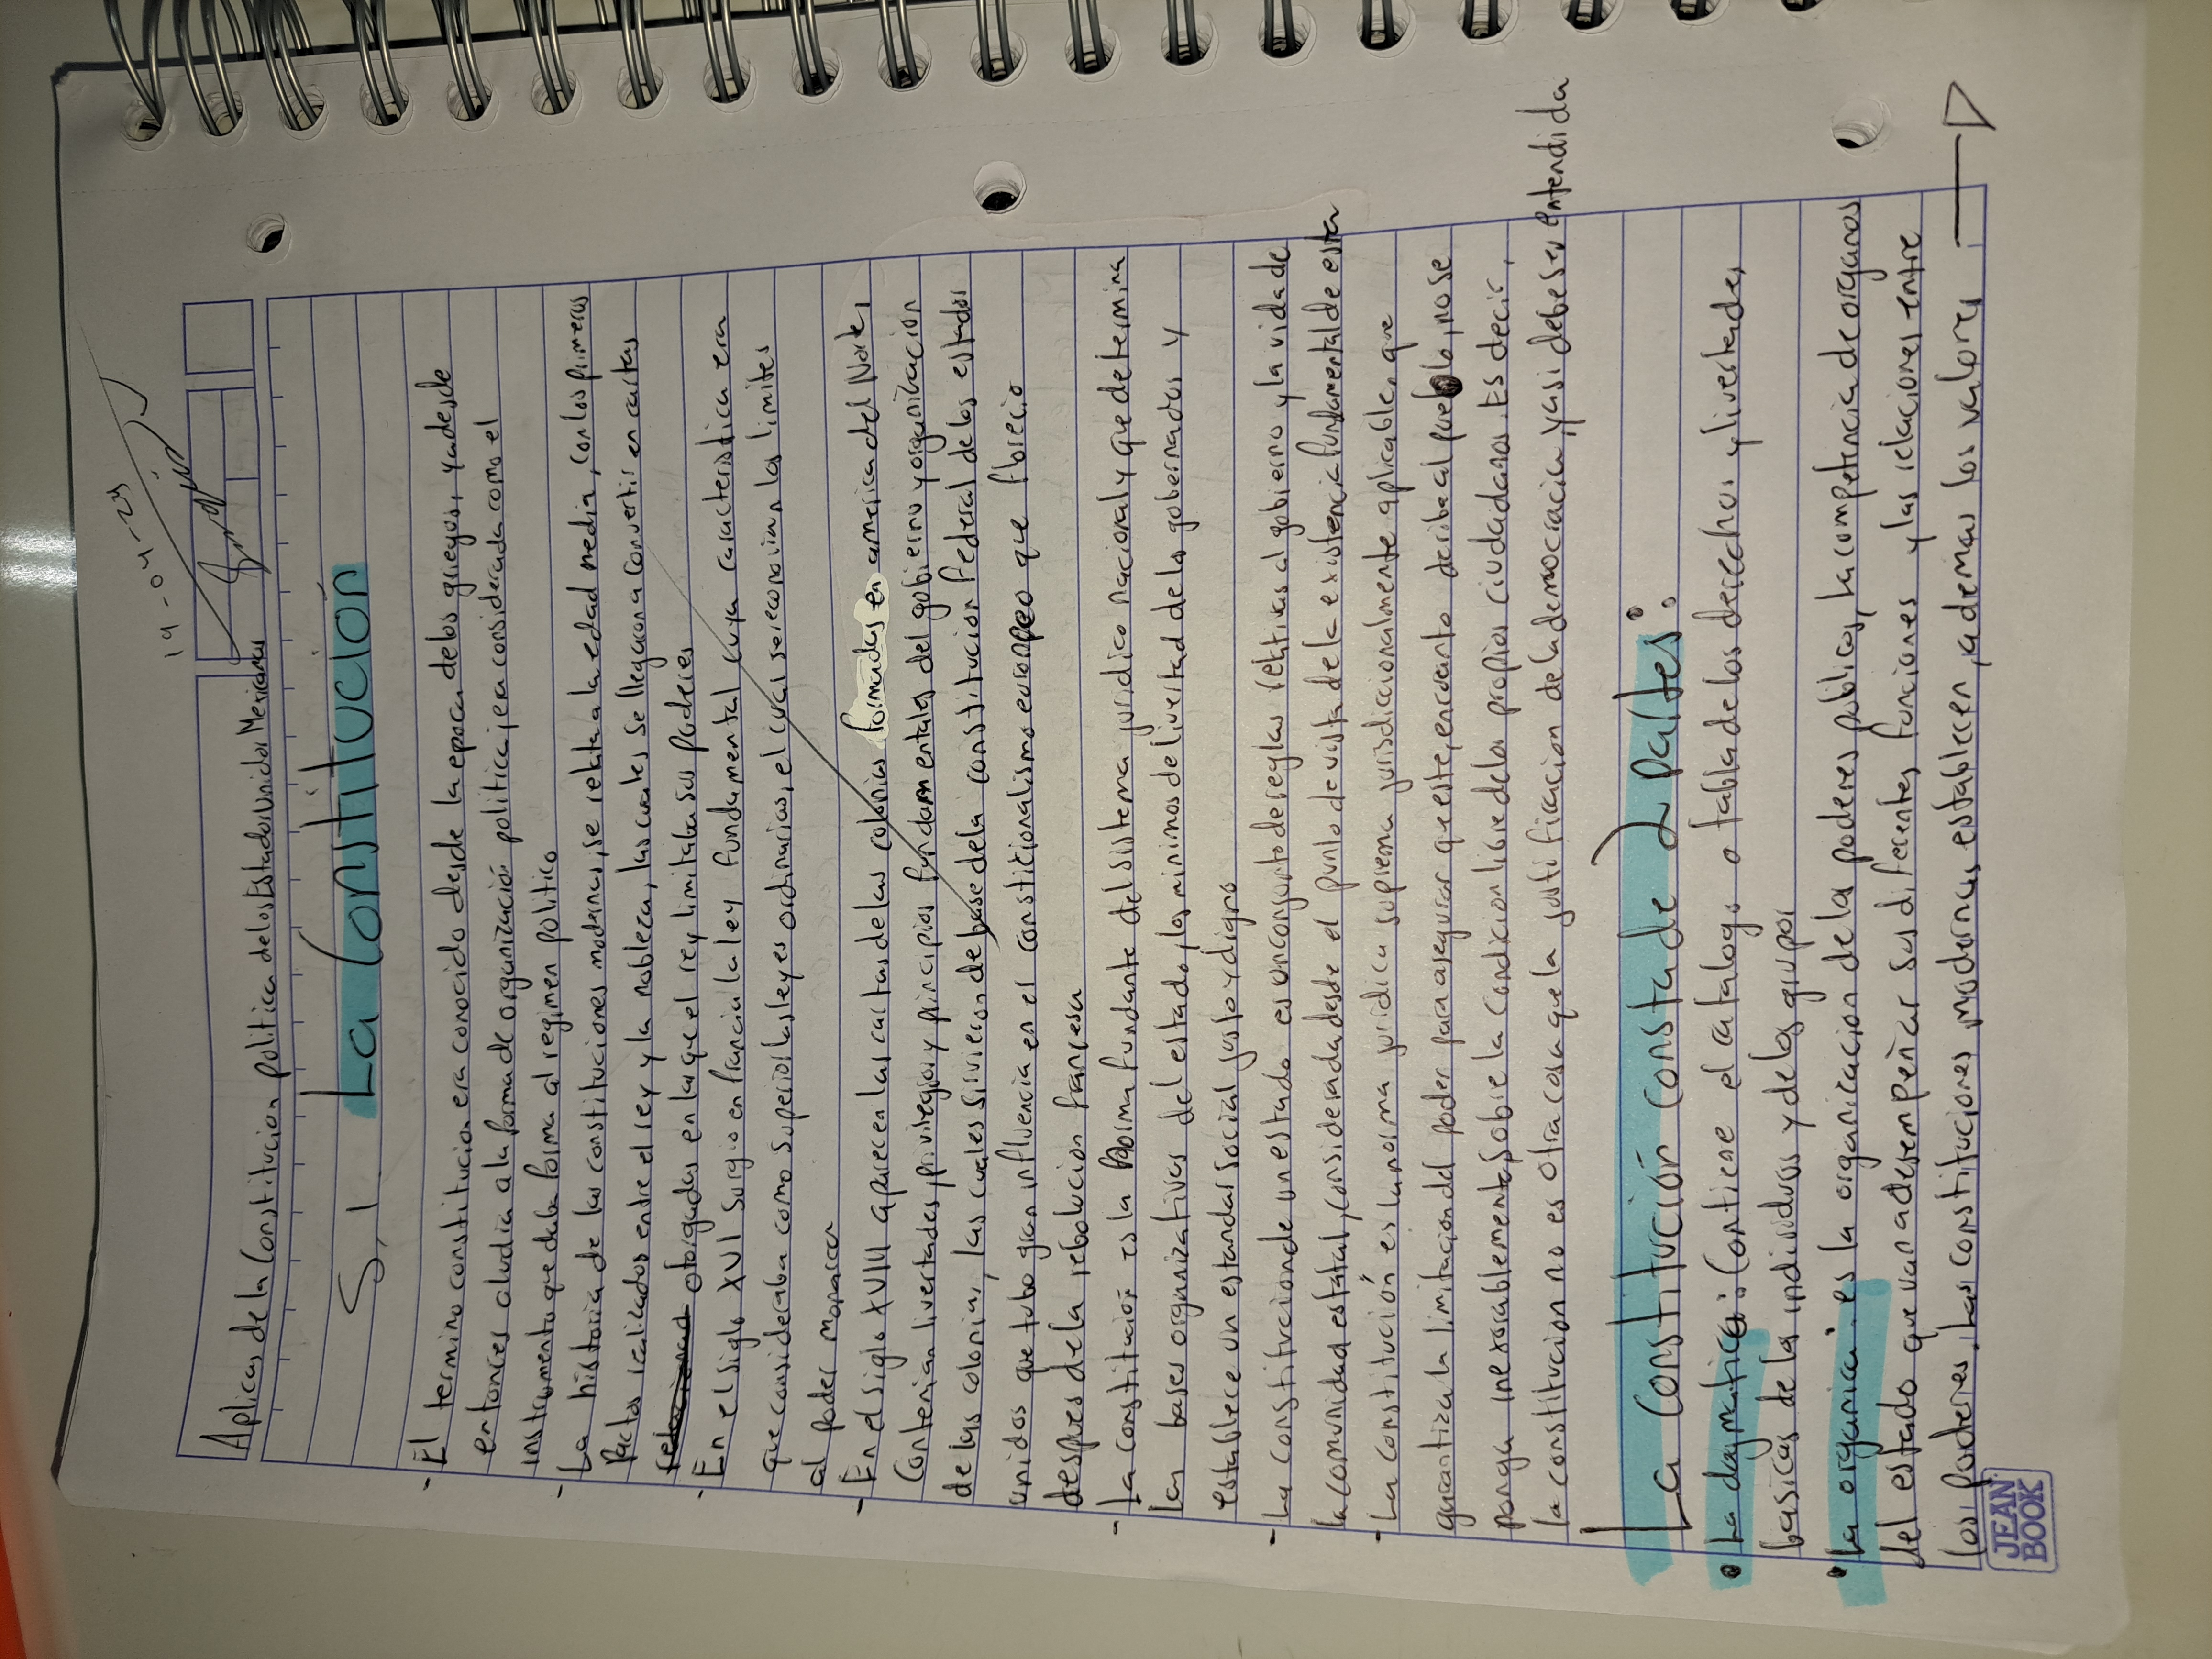 19-04-24
Aplicas de la Constitucion politica de los Estados Unidos Mexicanos
S.1 La Constitución
- El termino constitucion era conocido desde la epoca de los griegos, ya desde
entonces aludia a la forma de organizació politica, era considerada como el
instrumento que daba forma al regimen politico
- La historia de las constituciones modernas, se relata a la edad media, con los primeros
Pactos realizados entre el rey y la nobleza, las cuales se llegaron a convertir en cartas
otorgadas en las que el rey limitaba sus poderes
- En el siglo XVI surgio en Francia la ley fundamental cuya caracteristica era
que consideraba como superior las leyes ordinarias, el cual se reconovian los limites
al poder monarca
- En el siglo XVIII aparecen las cartas de las colonias formadas en america del Norte,
Contenian livertades, privilegios y principios fundamentales del gobierno y organización
de las colonias, las cuales sirvieron de base de la constitucion Federal de los estados
unidos que tubo gran influencia en el constitucionalismo europeo que florecio
despues de la rebolucion francesa
- La constitución es la norma fundante del sistema juridico nacional y que determina
las bases organizativas del estado, los minimos de livertad de los gobernados y
establece un estandar social justo y digno
- La constitucion de un estado es un conjunto de reglas relativas al gobierno y la vida de
la comunidad estatal, considerada desde el punto de vista de la existencia fundamental de esta
- La constitución es la norma juridica suprema jurisdiccionalmente aplicable, que
garantiza la limitacion del poder para asegurar que este, encuanto deriba al pueblo, no se
ponga inexorablemente sobre la condicion libre de los propios ciudadanos. Es decir,
la constitucion no es otra cosa que la justificacion de la democracia, y asi debe ser entendida
La Constitución consta de 2 partes:
• La dogmatica: Contiene el catalogo o tabla de los derechos y livertades
basicas de los individuos y de los grupos
• La organica: es la organizacion de los poderes publicos, la competencia de organos
del estado que van a desempeñar sus diferentes funciones y las relaciones entre
los poderes. Las constituciones modernas establecen, ademas los valores
JEAN
BOOK